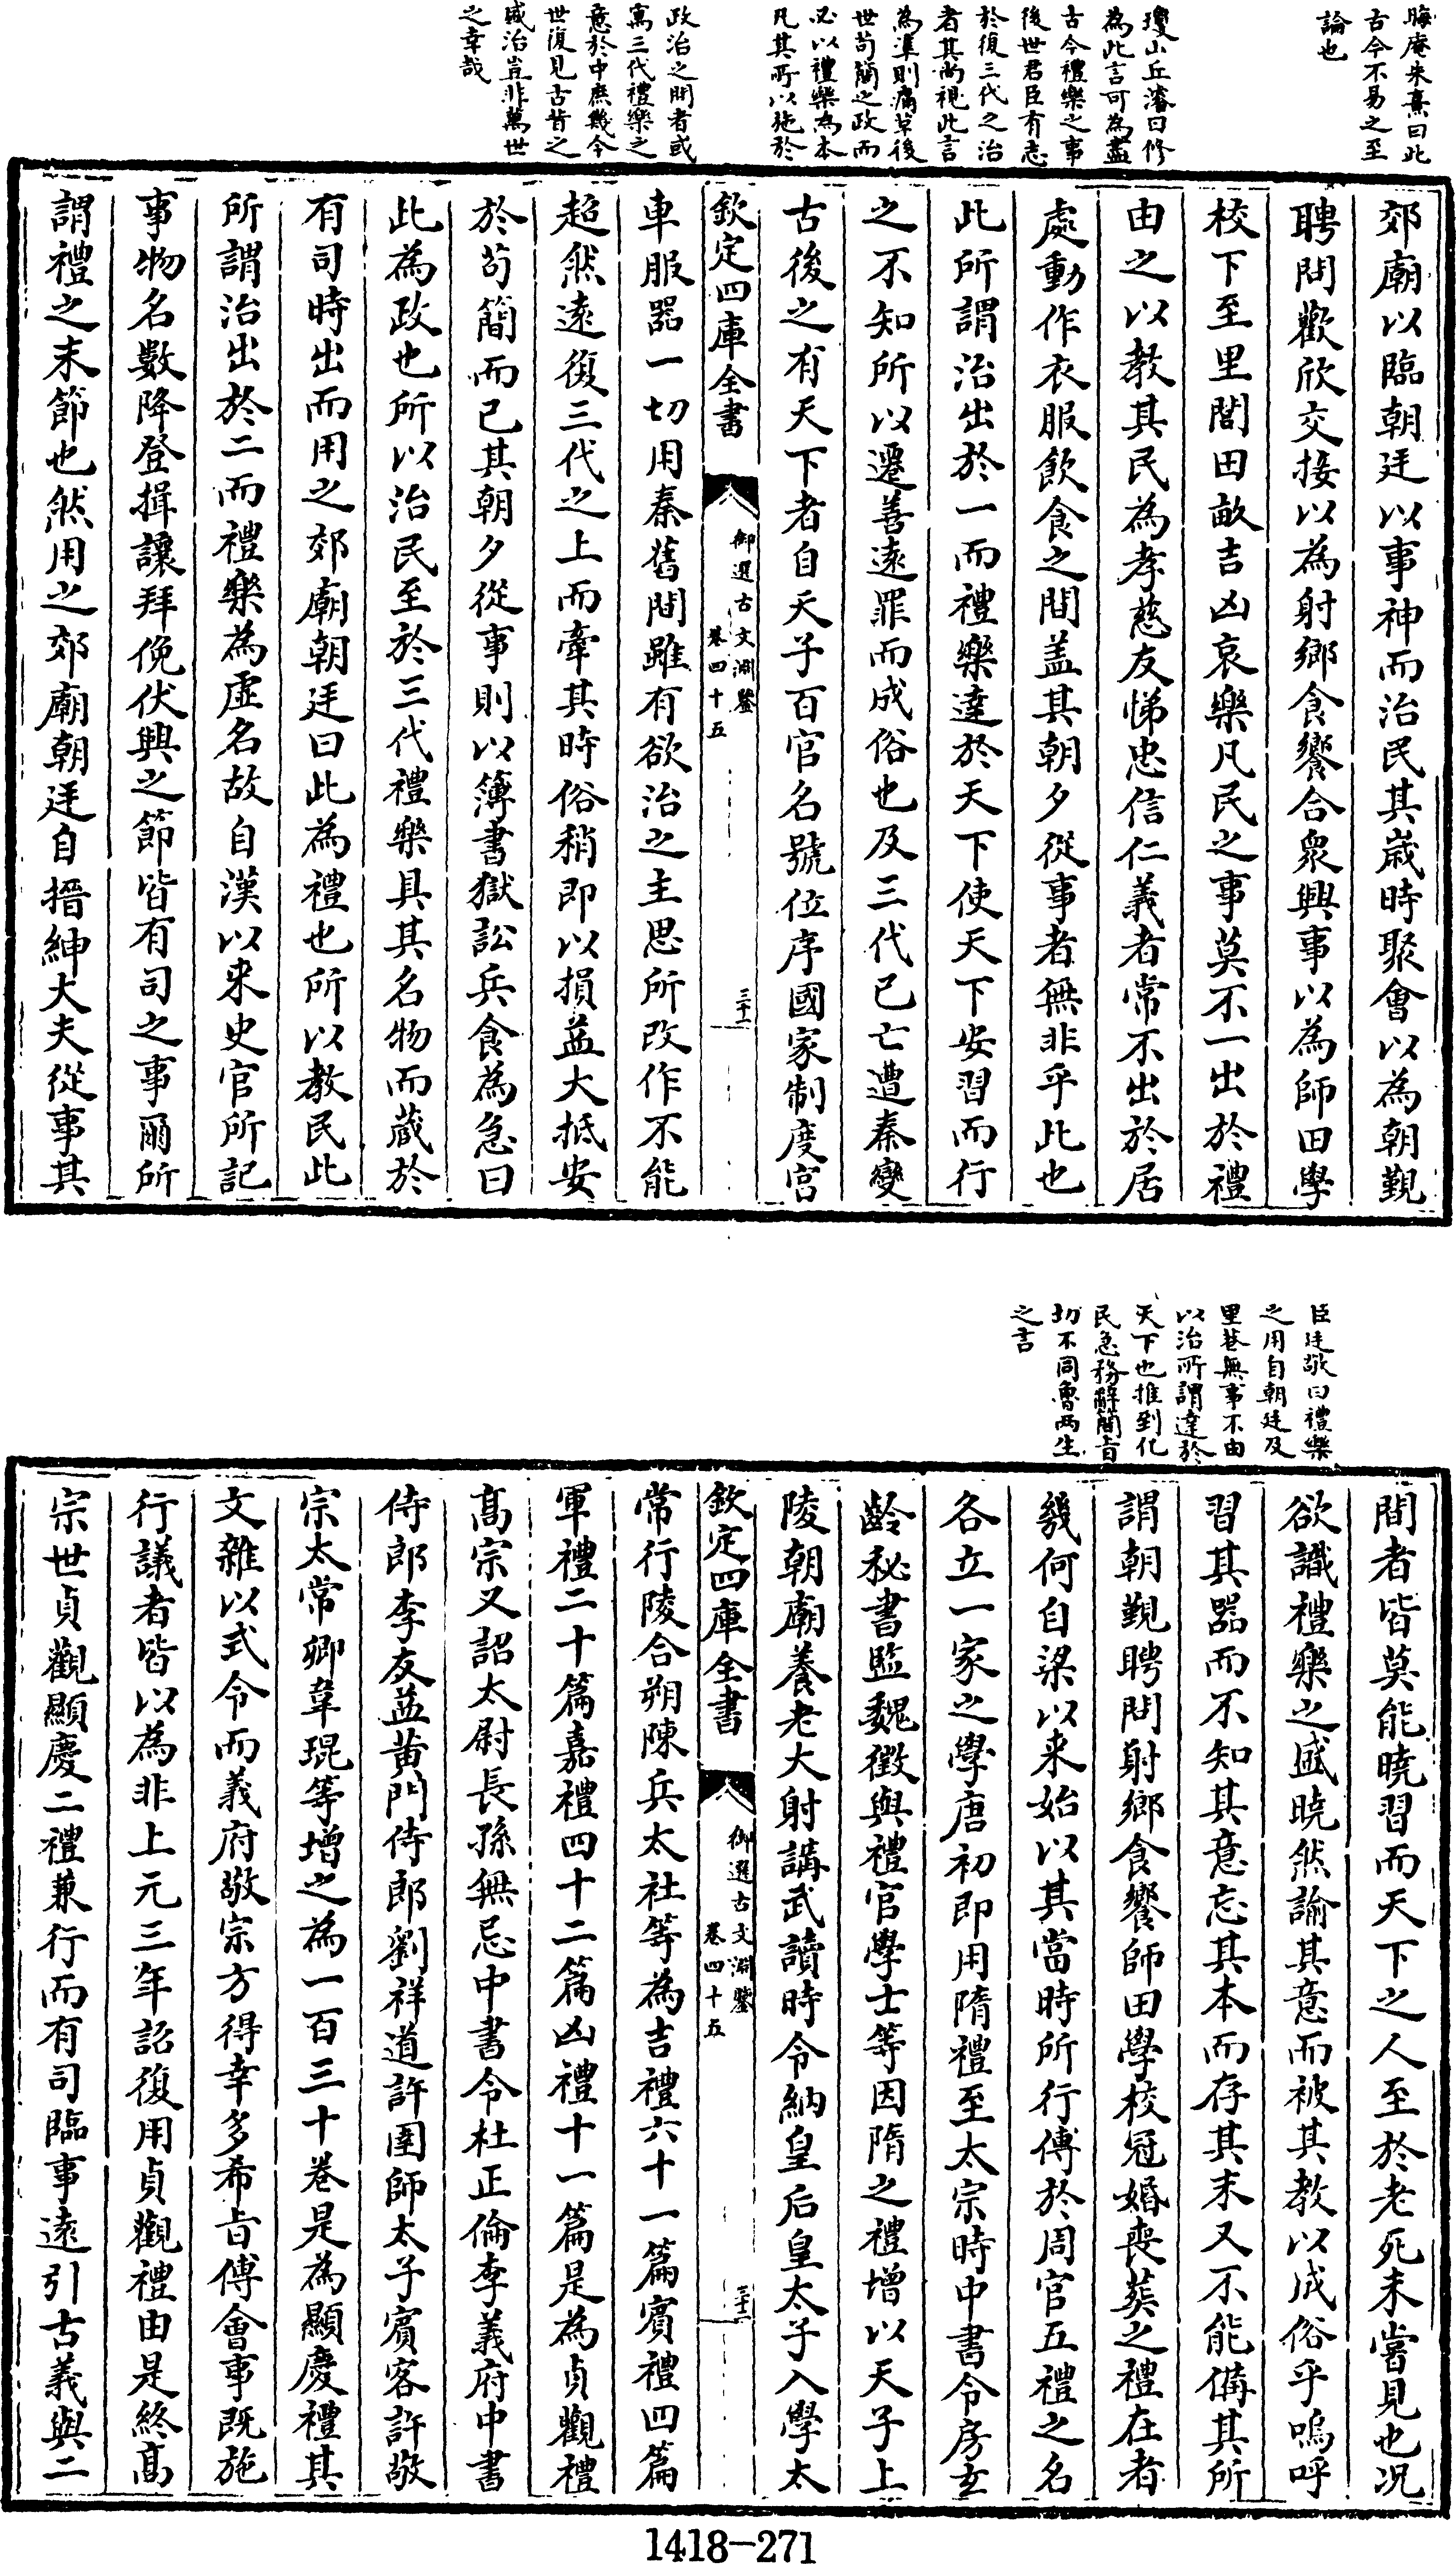 晦庵朱熹曰此
古今不易之至
論也
瓊山丘濬曰修
為此言可為盡
古今禮樂之事
後世君臣有志
於復三代之治
者其尚視此言
為準則痛革後
世苟簡之政而
必以禮樂為本
凡其所以施於
政治之間者或
寓三代禮樂之
意於中庶幾今
世復見古昔之
盛治豈非萬世
之幸哉
郊廟以臨朝廷以事神而治民其歲時聚會以為朝覲
聘問歡欣交接以為射鄉食饗合衆興事以為師田學
校下至里閭田畝吉凶哀樂凡民之事莫不一出於禮
由之以教其民為孝慈友悌忠信仁義者常不出於居
處動作衣服飲食之間盖其朝夕從事者無非乎此也
此所謂治出於一而禮樂達於天下使天下安習而行
之不知所以遷善遠罪而成俗也及三代已亡遭秦變
古後之有天下者自天子百官名號位序國家制度宮
欽定四庫全書
御選古文淵鑒
卷四十五
三十一
車服器一切用秦舊間雖有欲治之主思所改作不能
超然遠復三代之上而牽其時俗稍即以損益大抵安
於苟簡而已其朝夕從事則以簿書獄訟兵食為急曰
此為政也所以治民至於三代禮樂具其名物而藏於
有司時出而用之郊廟朝廷曰此為禮也所以教民此
所謂治出於二而禮樂為虛名故自漢以来史官所記
事物名數降登揖讓拜俛伏興之節皆有司之事爾所
謂禮之末節也然用之郊廟朝廷自搢紳大夫從事其
臣廷敬曰禮樂
之用自朝廷及
里巷無事不由
以治所謂達於
天下也推到化
民急務辭簡旨
切不同魯兩生
之言
間者皆莫能曉習而天下之人至於老死未嘗見也况
欲識禮樂之盛曉然諭其意而被其教以成俗乎嗚呼
習其器而不知其意忘其本而存其末又不能備其所
謂朝覲聘問射鄉食饗師田學校冠婚喪葬之禮在者
幾何自梁以来始以其當時所行傅於周官五禮之名
各立一家之學唐初即用隋禮至太宗時中書令房玄
齡秘書監魏徵與禮官學士等因隋之禮增以天子上
陵朝廟養老大射講武讀時令納皇后皇太子入學太
欽定四庫全書
御選古文淵鑒
卷四十五
三十二
常行陵合朔陳兵太社等為吉禮六十一篇賓禮四篇
軍禮二十篇嘉禮四十二篇凶禮十一篇是為貞觀禮
高宗又詔太尉長孫無忌中書令杜正倫李義府中書
侍郎李友益黄門侍郎劉祥道許圉師太子賓客許敬
宗太常卿韋琨等增之為一百三十卷是為顯慶禮其
文雜以式令而義府敬宗方得幸多希旨傅會事既施
行議者皆以為非上元三年詔復用貞觀禮由是終高
宗世貞觀顯慶二禮兼行而有司臨事遠引古義與二
1418-271